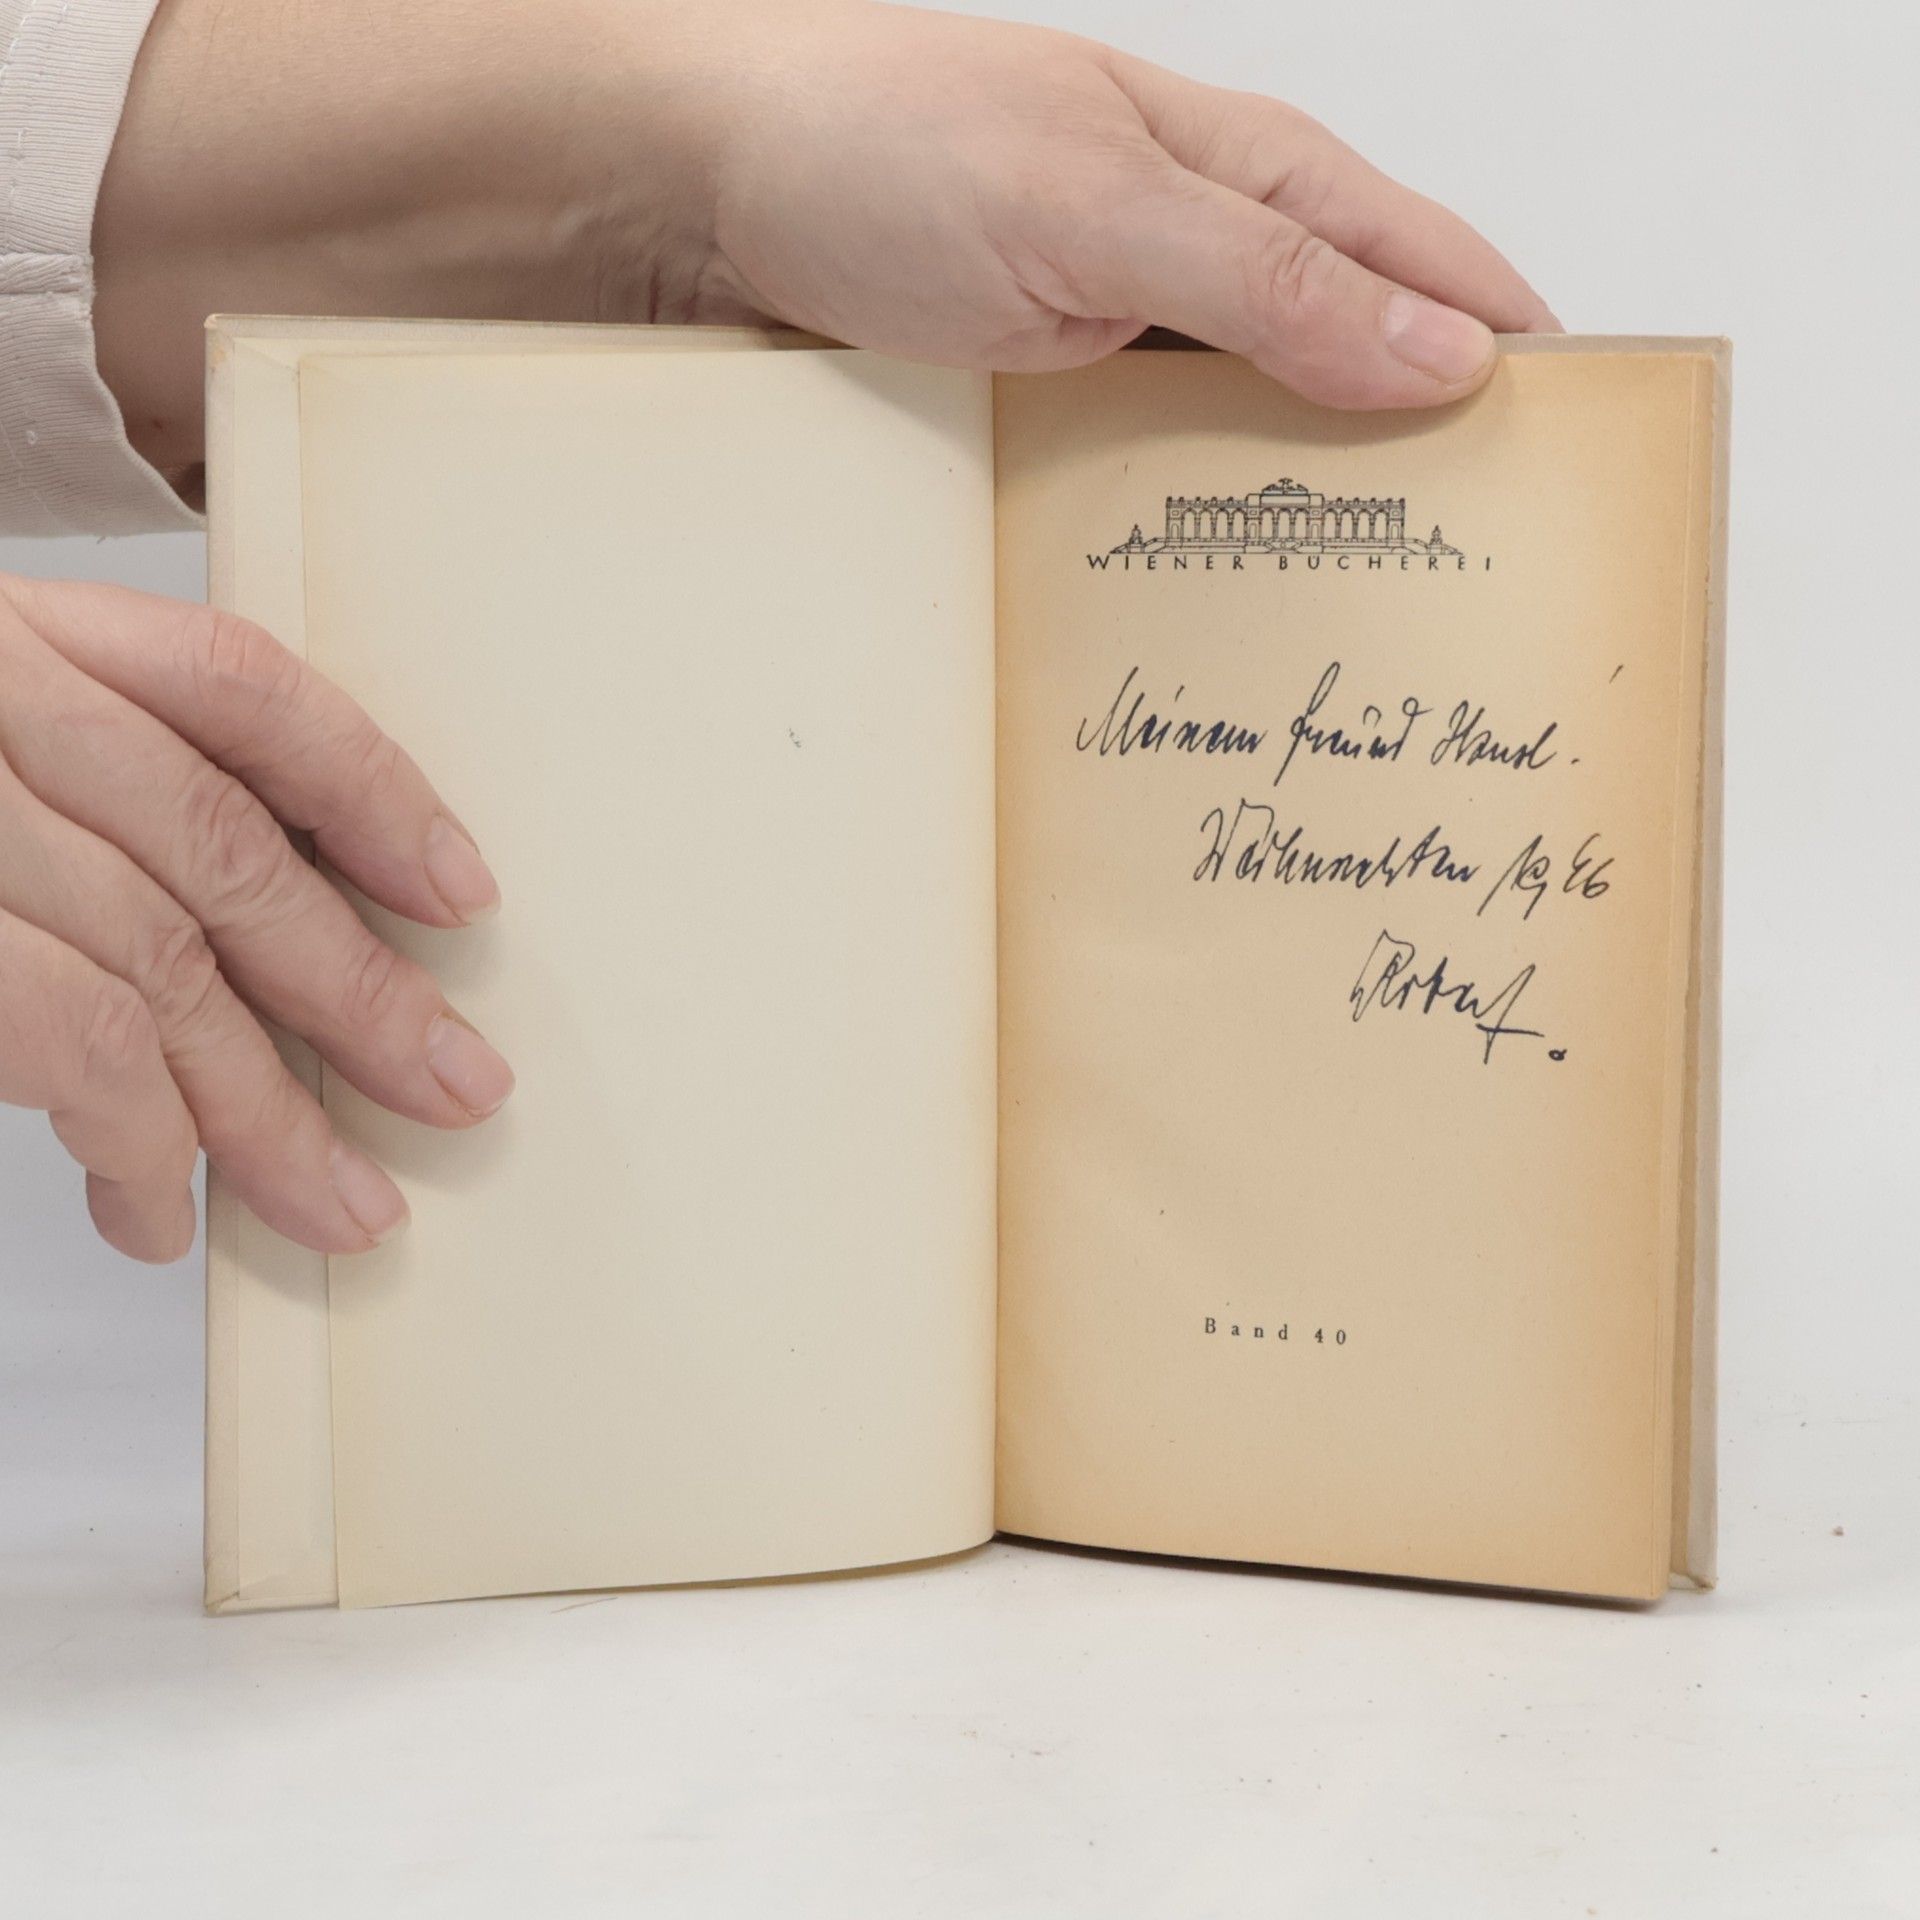 WIENER BÜCHEREI
Meinem Freund Hansl.
Weihnachten 46
Band 40